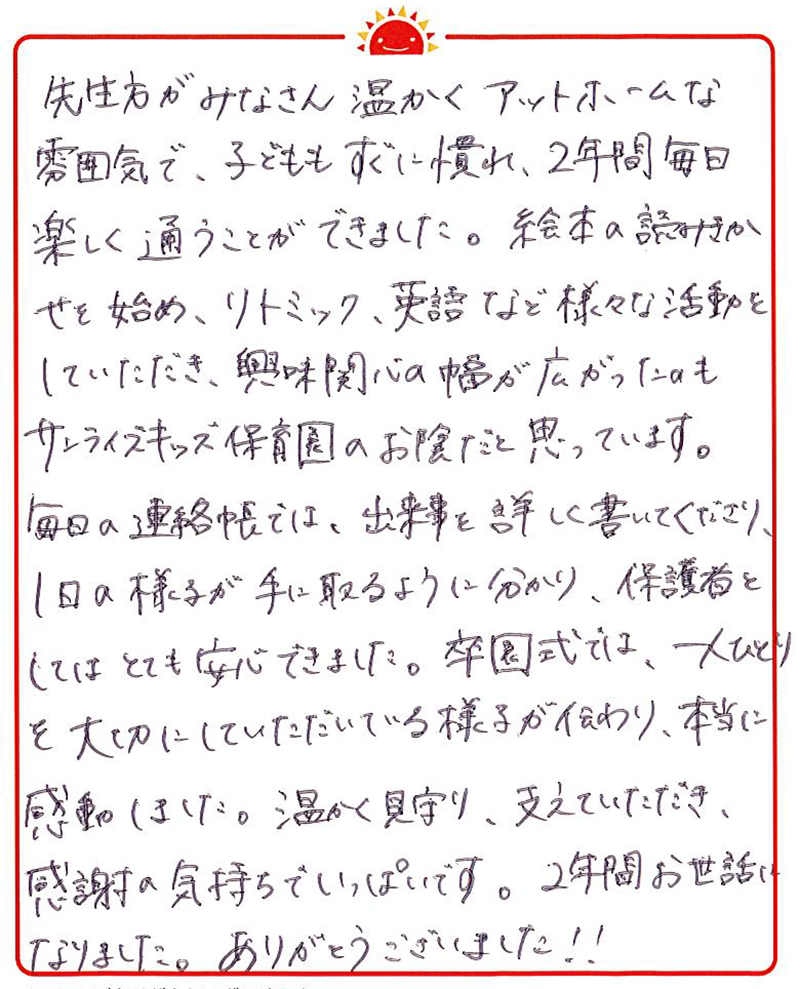 先生方がみなさん温かくアットホームな
雰囲気で、子どももすぐに慣れ、2年間毎日
楽しく通うことができました。絵本の読みきか
せを始め、リトミック、英語など様々な活動を
していただき、興味関心の幅が広がったのも
サンライズキッズ保育園のお陰だと思っています。
毎日の連絡帳では、出来事を詳しく書いてくださり、
1日の様子が手に取るように分かり、保護者と
してはとても安心できました。卒園式では、一人ひとり
を大切にしていただいている様子が伝わり、本当に
感動しました。温かく見守り、支えていただき、
感謝の気持ちでいっぱいです。2年間お世話に
なりました。ありがとうございました!!